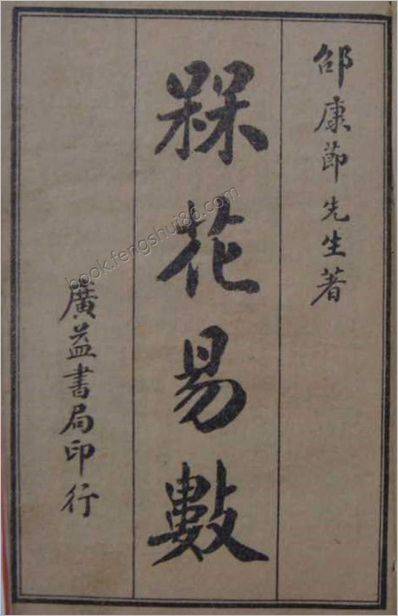 邵康節先生著
槑花易數
廣益書局印行
book.fengshui86.com